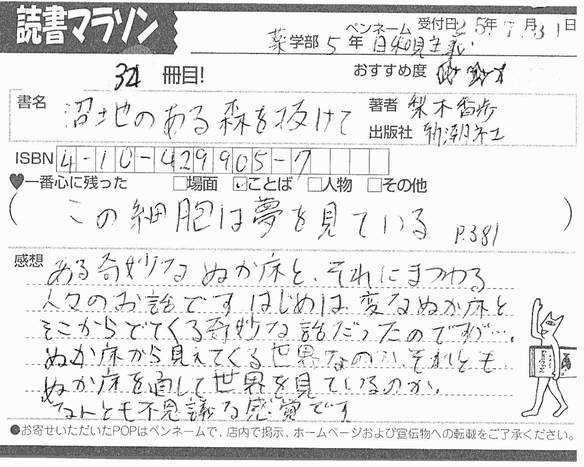 読書マラソン
ペンネーム 受付日25年7月31日
薬学部5年 日和見主義
32冊目! おすすめ度
書名 沼地のある森を抜けて
著者 梨木香歩
出版社 新潮社
ISBN 4-10-429905-7
♥一番心に残った □場面 ☑ことば □人物 □その他
(この細胞は夢を見ている P.381)
感想 ある奇妙な ぬか床と、それにまつわる
人々のお話です はじめは 変なぬか床と
そこからでてくる奇妙な話だったのですが…、
ぬか床から見えてくる世界なのか、それとも
ぬか床を通して世界を見ているのか、
なんとも不思議な感覚です
●お寄せいただいたPOPはペンネームで、店内で掲示、ホームページおよび宣伝物への転載をご了承ください。